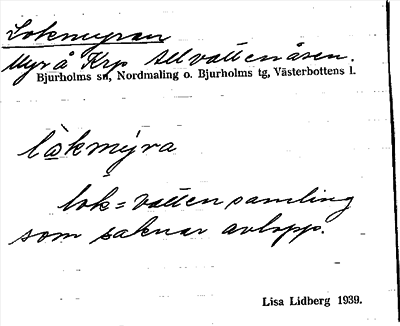 Lokmyran
Myr å Krp till vattenåsen.
Bjurholms sn, Nordmaling o. Bjurholms tg, Västerbottens l.
lo̠kmy̠ra
lok = vattensamling
som saknar avlopp.
Lisa Lidberg 1939.